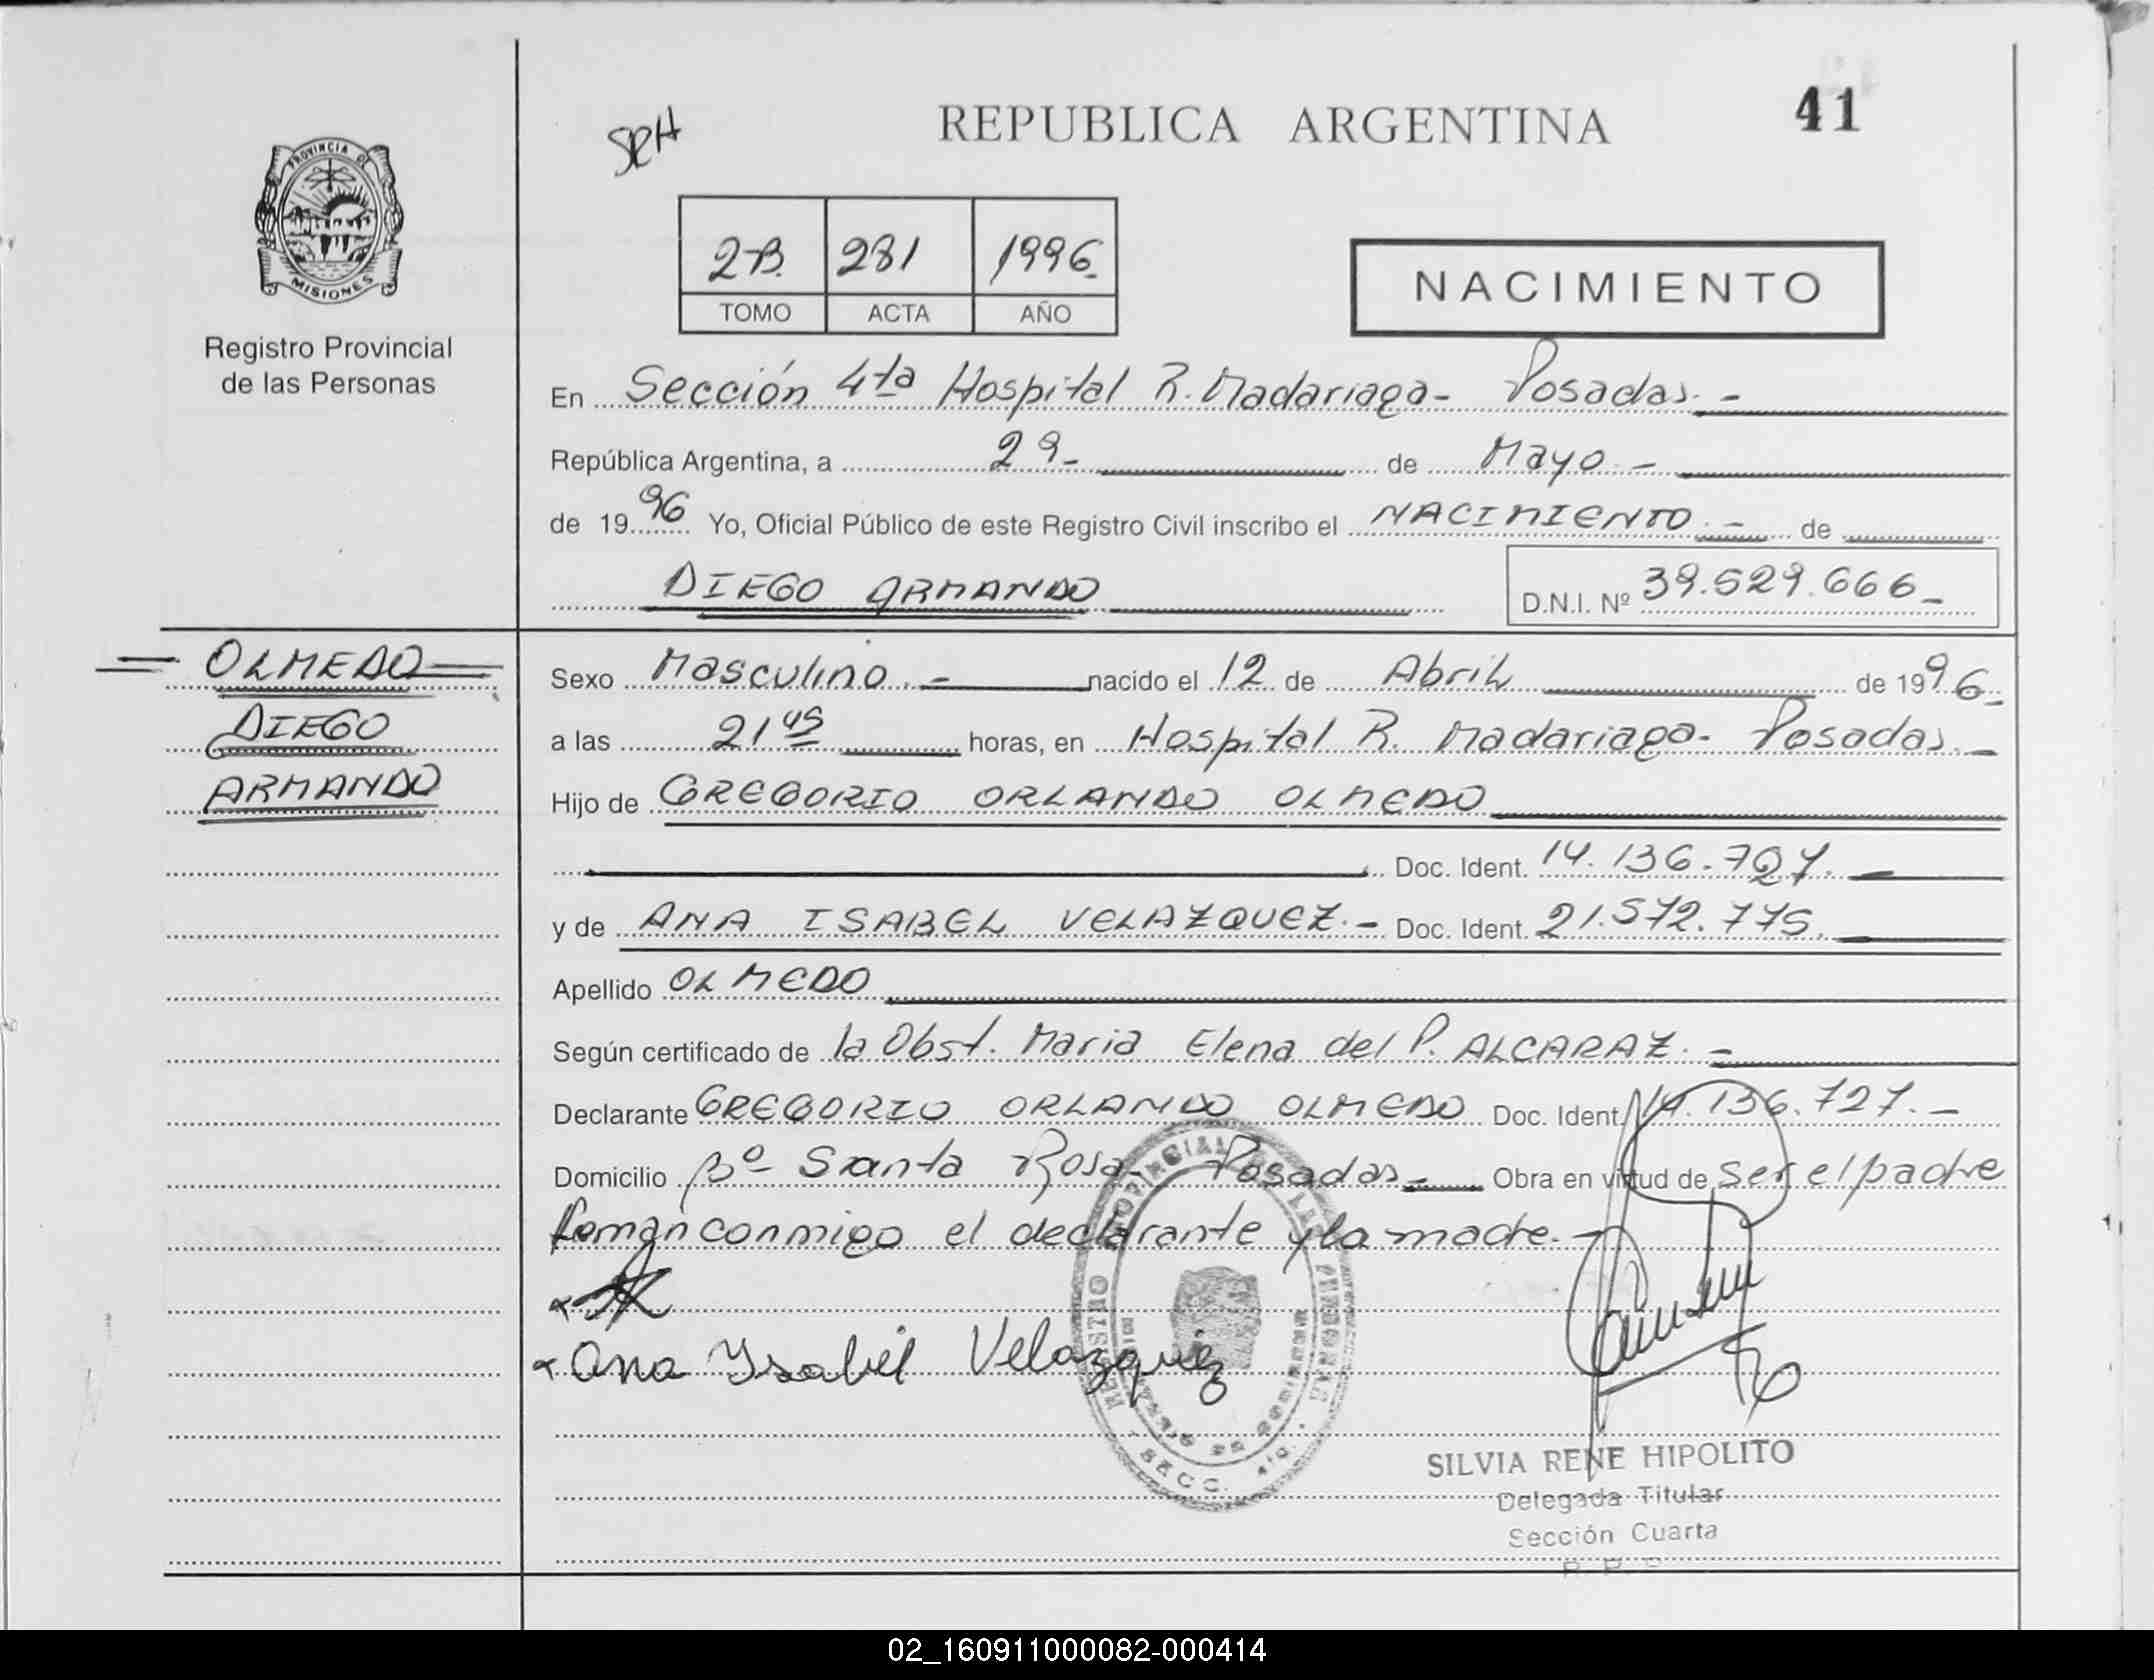 41
SRH
REPUBLICA ARGENTINA
PROVINCIA DE
MISIONES
Registro Provincial
de las Personas
2-B. 281 1996
TOMO ACTA AÑO
NACIMIENTO
En Sección 4ta Hospital R. Madariaga- Posadas.-
República Argentina, a 29- de Mayo.-
de 1996 Yo, Oficial Público de este Registro Civil inscribo el NACIMIENTO.- de
DIEGO ARMANDO D.N.I. Nº 39.529.666-
OLMEDO
DIEGO
ARMANDO
Sexo Masculino.- nacido el 12 de Abril de 1996-
a las 21 45 horas, en Hospital R. Madariaga- Posadas.-
Hijo de GREGORIO ORLANDO OLMEDO
Doc. Ident. 14.136.727.-
y de ANA ISABEL VELAZQUEZ.- Doc. Ident. 21.572.775.
Apellido OLMEDO
Según certificado de la Obst. Maria Elena del P. ALCARAZ.-
Declarante GREGORIO ORLANDO OLMEDO Doc. Ident. 14.136.727.-
Domicilio Bº Santa Rosa- Posadas- Obra en virtud de ser el padre
Firman conmigo el declarante y la madre.-
Ana Ysabel Velazquez
REGISTRO PROVINCIAL DE LAS PERSONAS
SECC. 4ta.
SILVIA RENE HIPOLITO
Delegada Titular
Sección Cuarta
R. P. P.
02_160911000082-000414